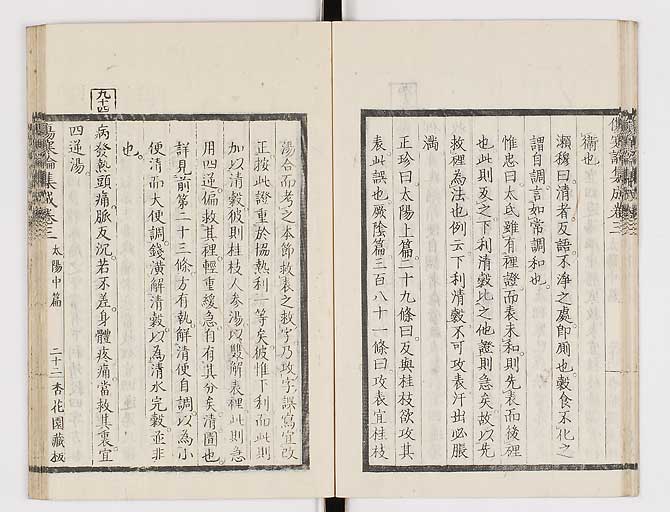 傷寒論集成卷三
衞也
瀨穆曰清者反語不淨之處即厠也穀食不化之
謂自調言如常調和也
惟忠曰大氐雖有裡證而表未和則先表而後裡
也此則反之下利清穀比之他證則急矣故以先
救裡為法也例云下利清穀不可攻表汗出必脹
滿
正珍曰太陽上篇二十九條曰反與桂枝欲攻其
表此誤也厥陰篇三百八十一條曰攻表宜桂枝
湯合而考之本節救表之救字乃攻字誤寫宜改
正按此證重於協熱利一等矣彼惟下利而此則
加以清穀彼則桂枝人參湯以雙解表裡此則急
用四逆偏救其裡輕重緩急自有其分矣清圊也
詳見前第二十三條方有執解清便自調以為小
便清而大便調錢潢解清穀以為清水完穀並非
也
九十四
病發熱頭痛脈反沉若不差身體疼痛當救其裏宜
四逆湯
傷寒論集成卷三
太陽中篇
二十二
杏花園藏板